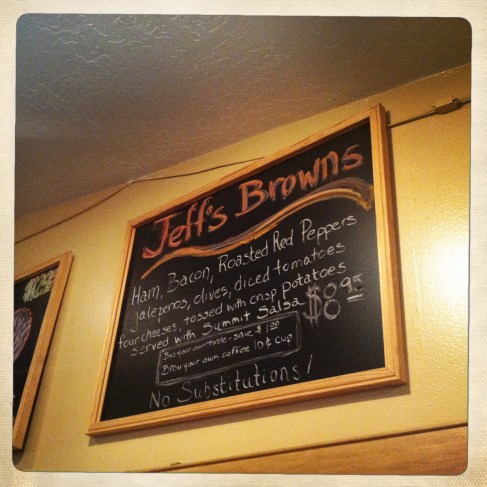 Jeff's Browns
Ham, Bacon, Roasted Red Peppers
jalepenos, olives, diced tomatoes
four cheeses, tossed with crisp potatoes
Served with Summit Salsa $8.95
Bus your own table - save $1.00
Brew your own coffee 10¢ cup
No Substitutions!